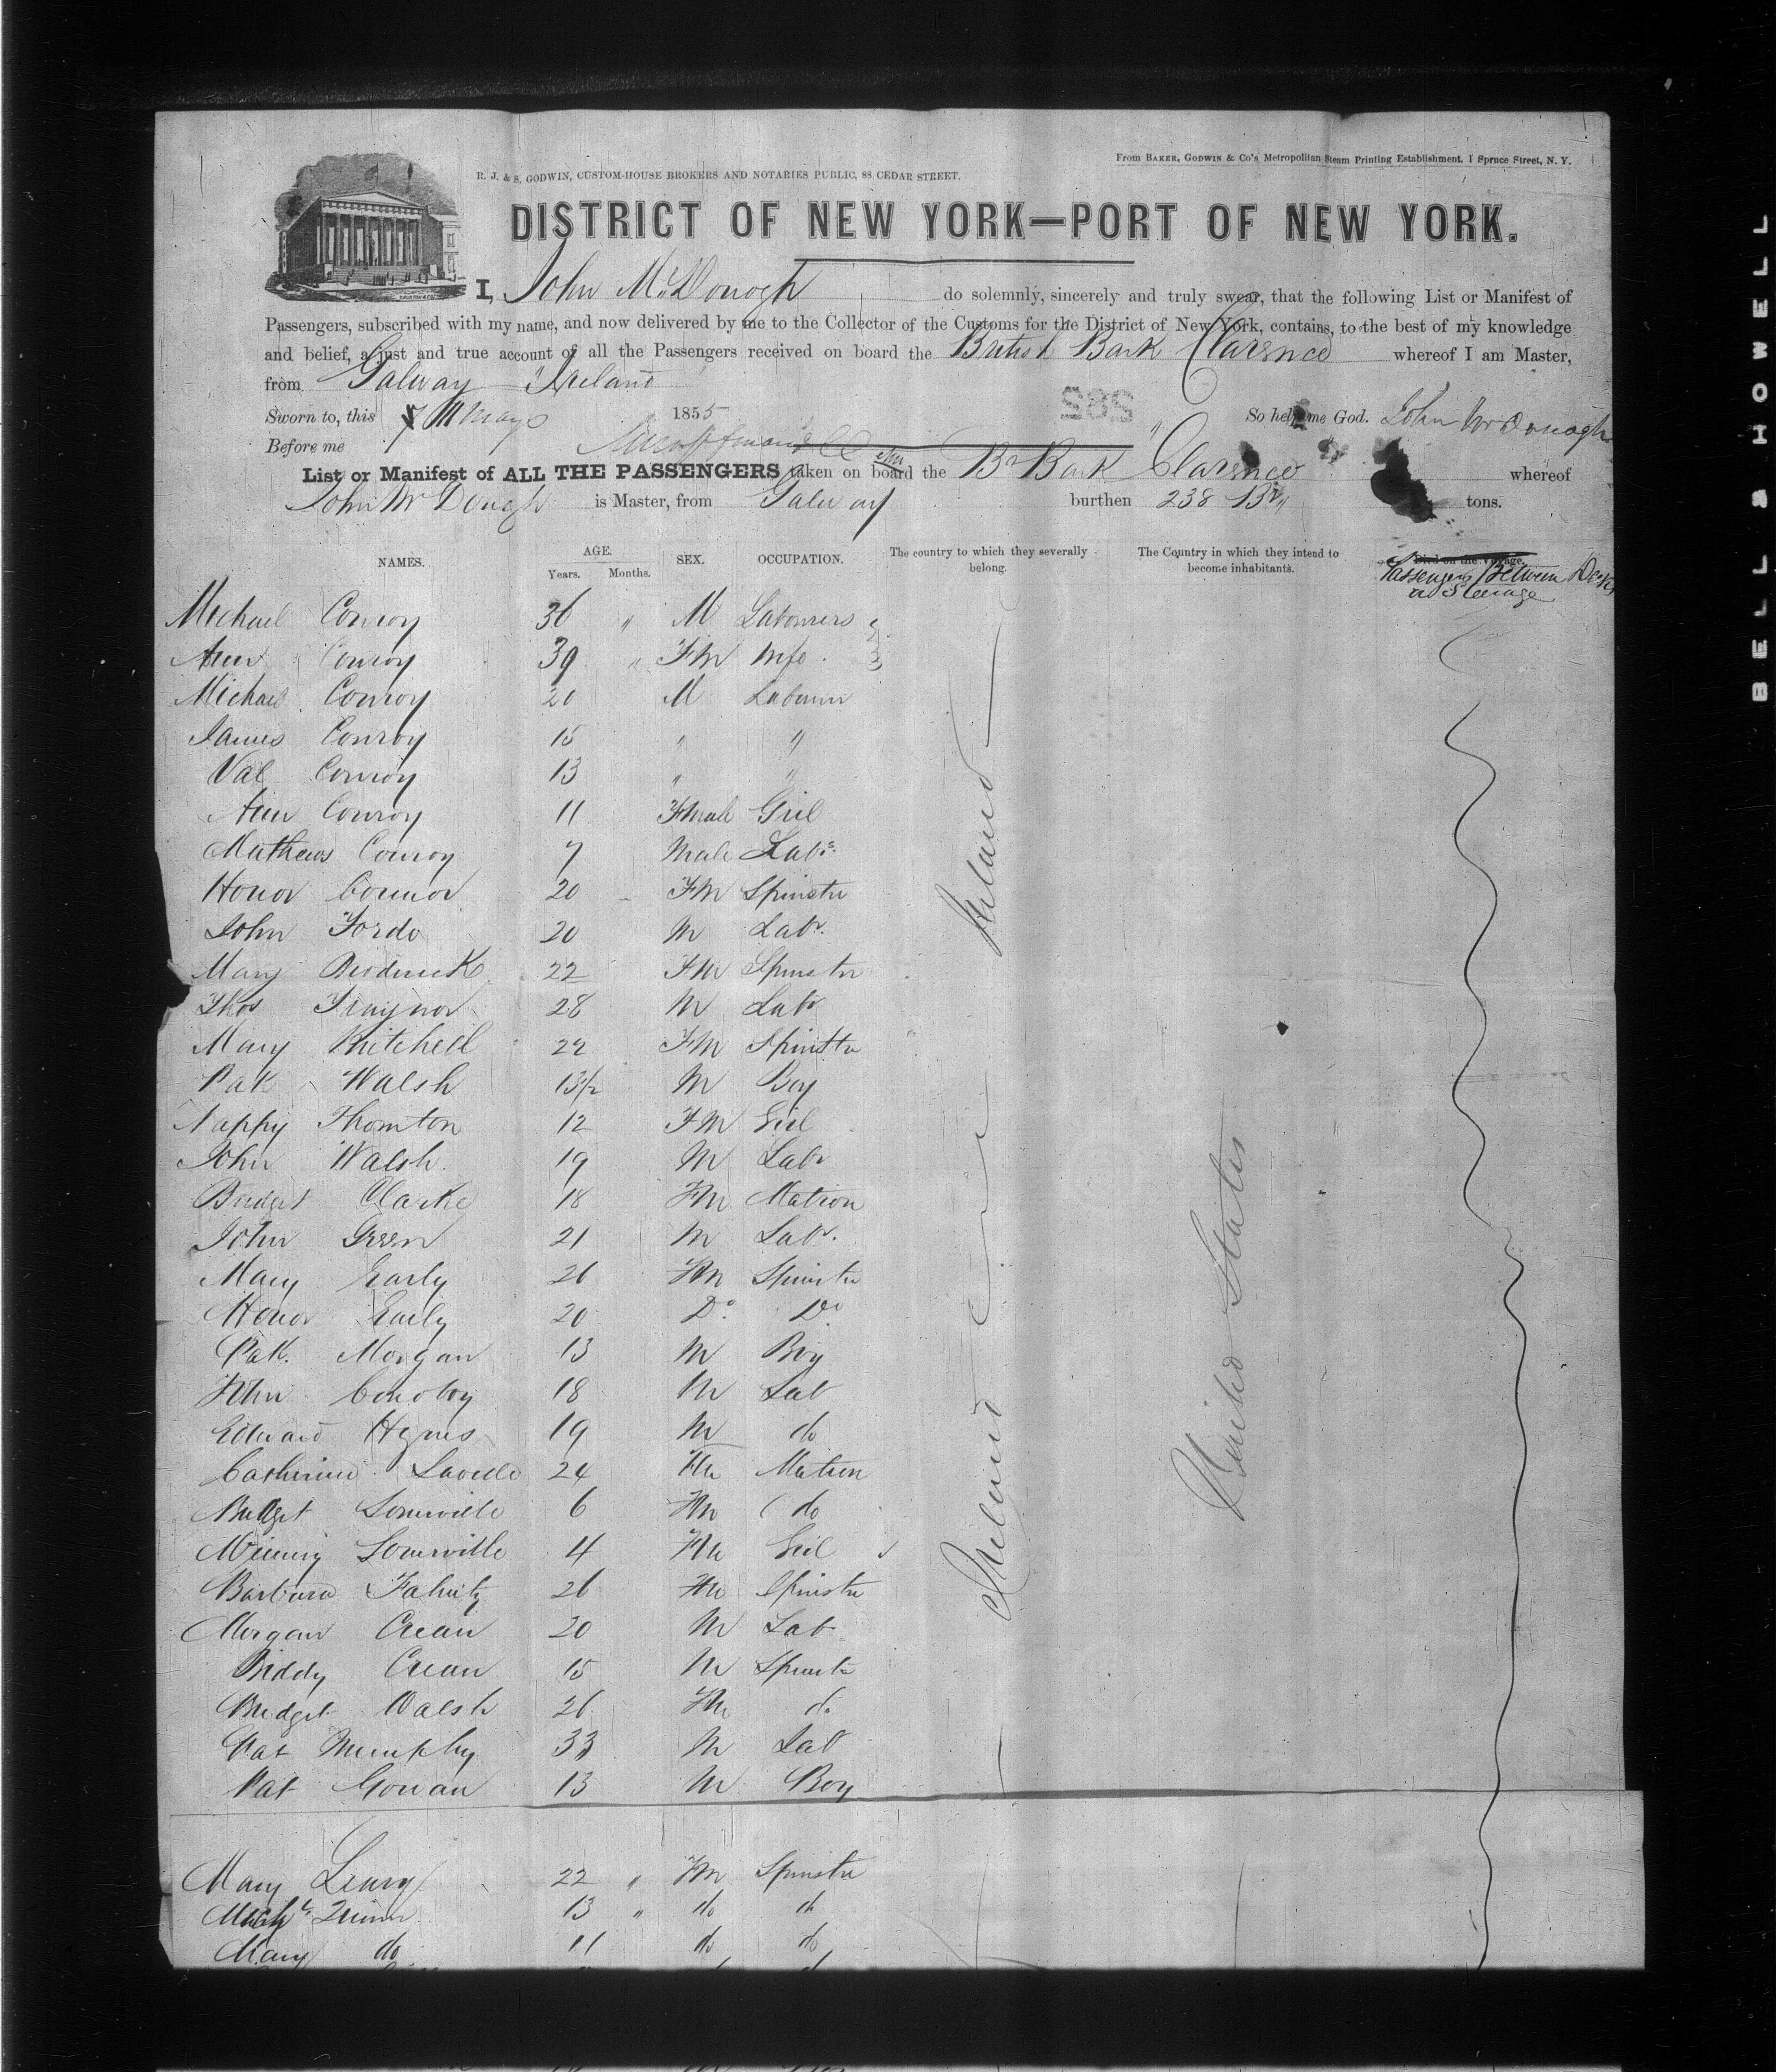 From BAKER, GODWIN & Co's Metropolitan Steam Printing Establishment, 1 Spruce Street, N. Y.
R. J. & S. GODWIN, CUSTOM-HOUSE BROKERS AND NOTARIES PUBLIC, 88 CEDAR STREET.
DISTRICT OF NEW YORK—PORT OF NEW YORK.
I, John McDonogh do solemnly, sincerely and truly swear, that the following List or Manifest of
Passengers, subscribed with my name, and now delivered by me to the Collector of the Customs for the District of New York, contains, to the best of my knowledge
and belief, a just and true account of all the Passengers received on board the British Bark Clarence whereof I am Master,
from Galway Ireland
Sworn to, this 7 May 1855 So help me God. John McDonogh
Before me
List or Manifest of ALL THE PASSENGERS taken on board the Br Bark Clarence whereof
John McDonogh is Master, from Galway burthen 238 tons.
NAMES. AGE. Years. Months. SEX. OCCUPATION. The country to which they severally belong. The Country in which they intend to become inhabitants. Died on the voyage.
Passengers Between Decks
Steerage
Michael Conroy 36 " M Labourers
Ann Conroy 39 " FM Wife
Michael Conroy 20 M Labourer
James Conroy 15 " "
Val Conroy 13 " "
Ann Conroy 11 Female Girl
Mathews Conroy 7 Male Labr
Honor Connor 20 FM Spinster
John Forde 20 M Labr.
Mary Broderick 22 FM Spinster
Thos Traynor 28 M Labr
Mary Mitchell 22 FM Spinster
Pak Walsh 13½ M Boy
Nappy Thornton 12 FM Girl
John Walsh 19 M Labr
Bridget Clarke 18 FM Matron
John Green 21 M Labr.
Mary Early 26 FM Spinster
Honor Early 20 Do Do
Pak. Morgan 13 M Boy
John Conoboy 18 M Lab
Edward Hynes 19 M do
Catherine 24 FM Matron
Bridget Somerville 6 FM do
Winny Somerville 4 FM Girl
Barbara 26 FM Spinster
Morgan Crean 20 M Lab
Biddy Crean 15 M Spinster
Bridget Walsh 26 FM do
Pat Murphy 33 M Lab
Pat Gowan 13 M Boy
Mary Leary 22 " FM Spinster
Quinn 13 " do do
Mary do 11 do do
Ireland
Ireland
United States
BELL & HOWELL